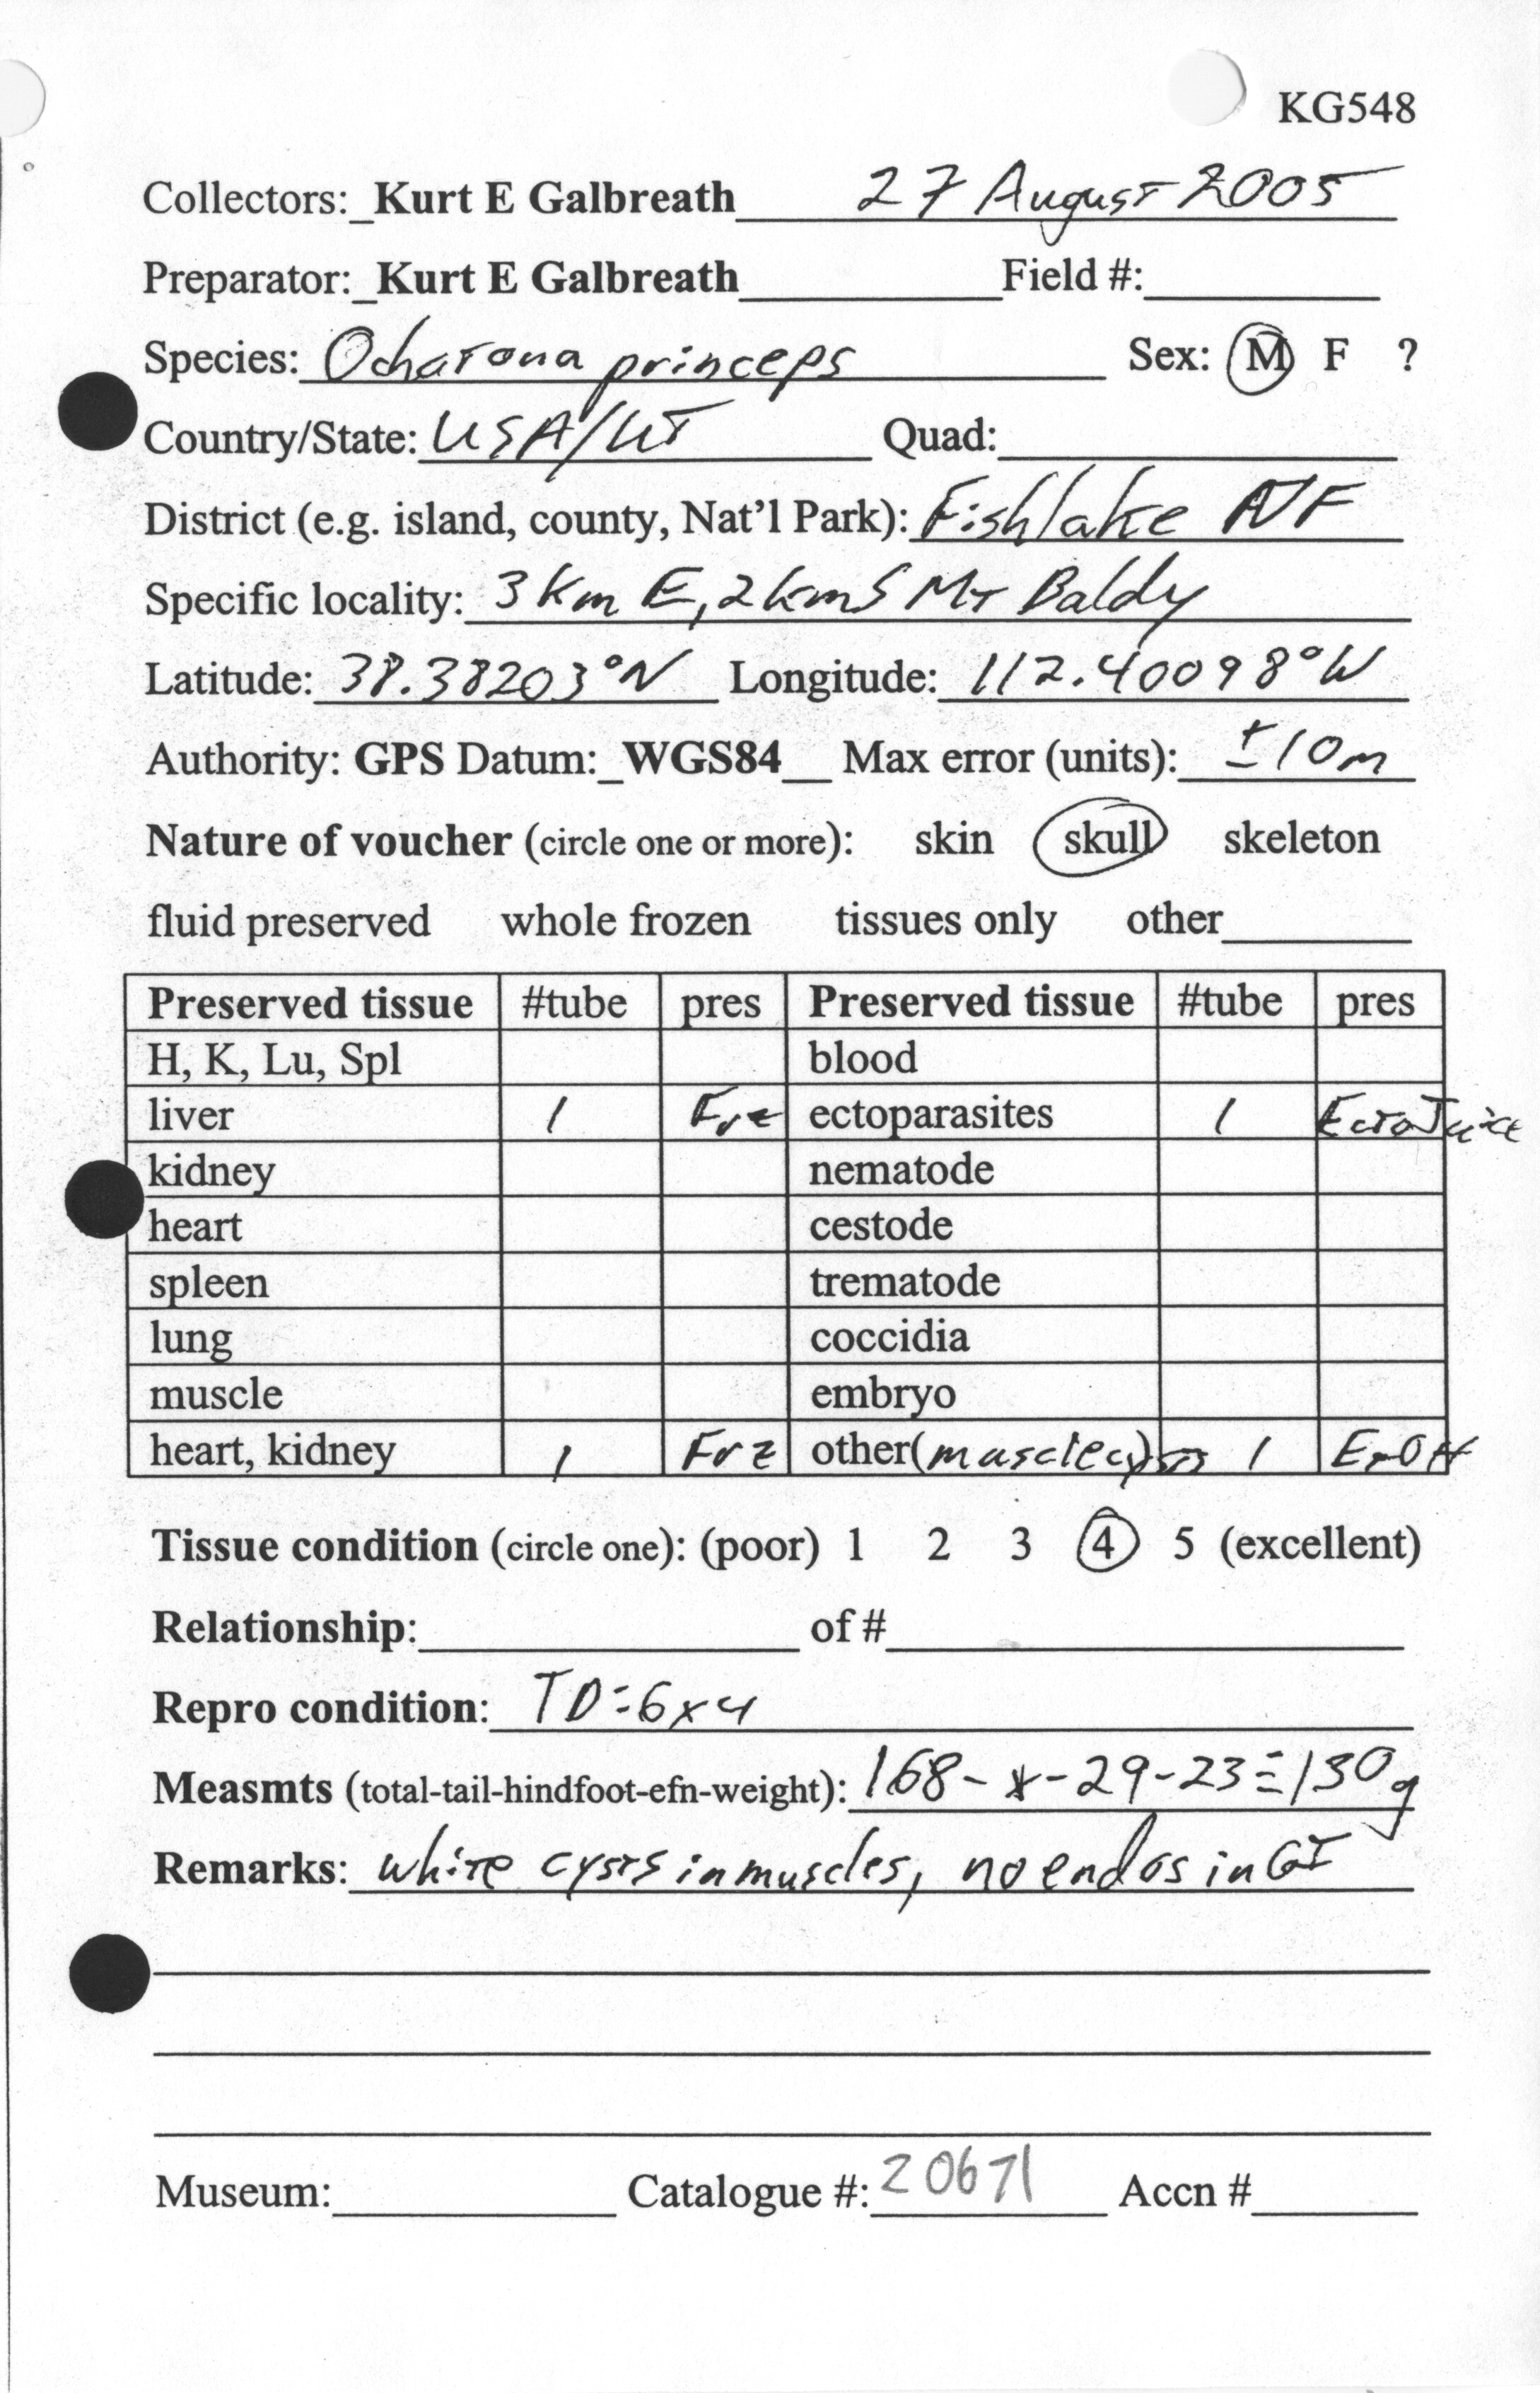 KG548
Collectors: Kurt E Galbreath 27 August 2005
Preparator: Kurt E Galbreath Field #:
Species: Ochotona princeps Sex: M F ?
Country/State: USA/UT Quad:
District (e.g. island, county, Nat'l Park): Fishlake NF
Specific locality: 3 km E, 2 km S Mt Baldy
Latitude: 38.38203°N Longitude: 112.40098°W
Authority: GPS Datum: WGS84 Max error (units): ±10m
Nature of voucher (circle one or more): skin skull skeleton
fluid preserved whole frozen tissues only other
Preserved tissue #tube pres Preserved tissue #tube pres
H, K, Lu, Spl blood
liver 1 Frz ectoparasites 1 EctoJuice
kidney nematode
heart cestode
spleen trematode
lung coccidia
muscle embryo
heart, kidney 1 Frz other(muscle cysts) 1 EtOH
Tissue condition (circle one): (poor) 1 2 3 4 5 (excellent)
Relationship: of #
Repro condition: TD=6x4
Measmts (total-tail-hindfoot-efn-weight): 168-x-29-23≡130g
Remarks: white cysts in muscles, no endos in GI
Museum: Catalogue #: 20671 Accn #